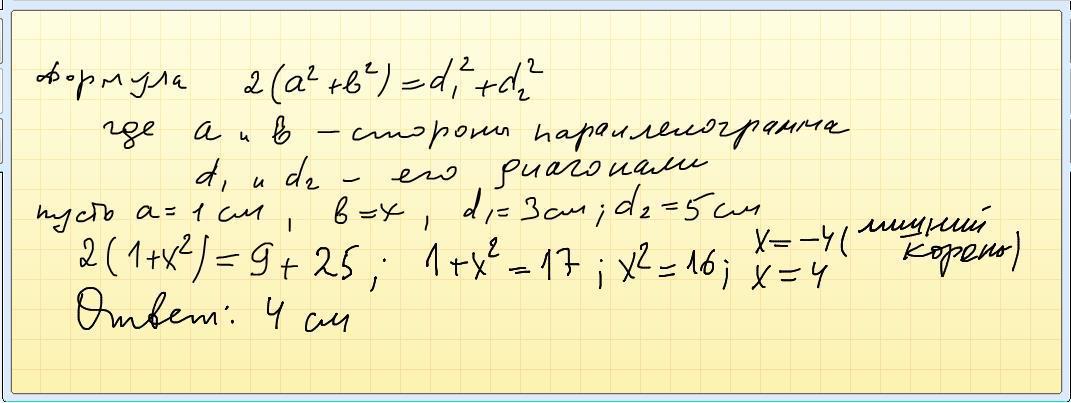 Формула 2(a² + b²) = d₁² + d₂²
где a и b – стороны параллелограмма
d₁ и d₂ – его диагонали
пусть a = 1 см, b = x, d₁ = 3 см; d₂ = 5 см
2(1+x²) = 9 + 25; 1+x² = 17; x² = 16; x = -4 (лишний корень) x = 4
Ответ: 4 см